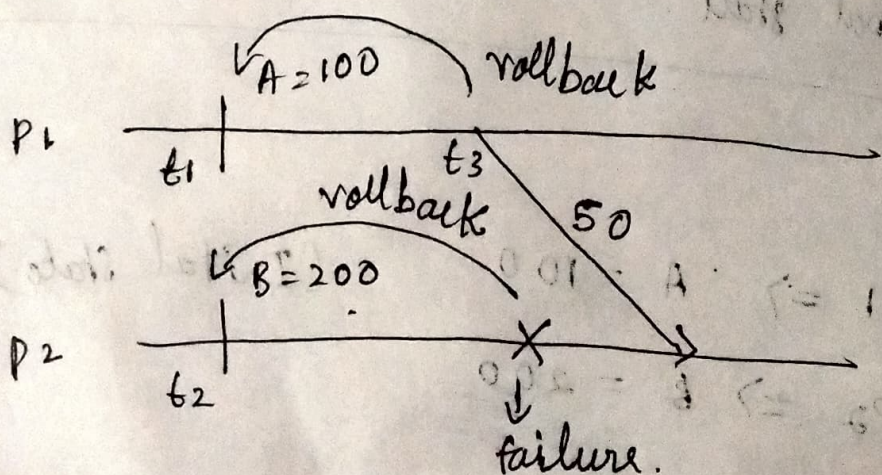 A = 100
rollback
P1
t1
t3
rollback
50
B = 200
P2
t2
failure.